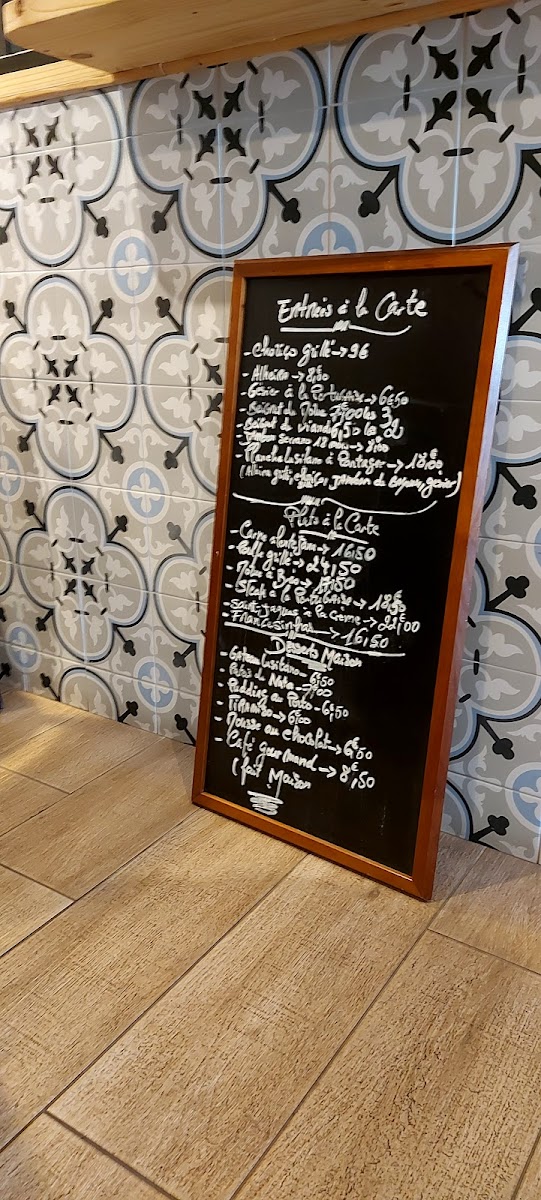 Entrées à la Carte
- Chouriço grillé -> 9€
- Alheira -> 8€50
- Gésier à la Portugaise -> 6€50
- Beignet de Morue 7€00 les 3
- Beignet de viande 6,50 les 2
- Jambon serrano 18 mois -> 8€00
- Planche lusitano à Partager -> 18€00
(Alheira, chouriço, Jambon de, gésier)
Plats à la Carte
- Carne alentejana -> 16€50
- grillé -> 24,50
- Morue à Bras -> 17€50
- Steak à la Portugaise -> 18€50
- Saint-Jacques à la Crème -> 22,00
- Francesinha -> 16,50
Desserts Maison
- Gateau lusitano - 6€50
- Pateis de Nata -> 
- Pudding au Porto - 6€50
- TIRAMISU -> 6€00
- Mousse au chocolat -> 6€50
- Café gourmand -> 8€,50
(fait Maison